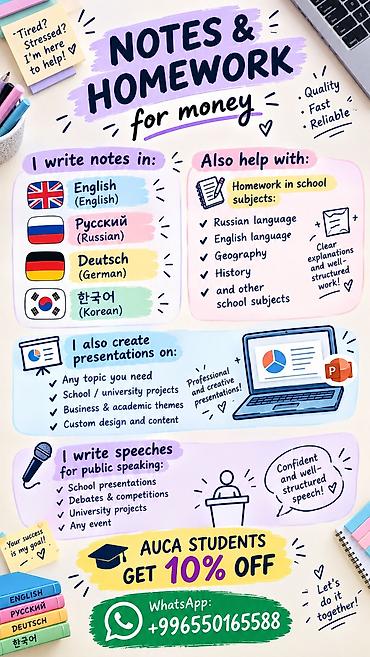 Tired?
Stressed?
I'm here
to help!
NOTES &
HOMEWORK
for money
Quality
Fast
Reliable
I write notes in:
English
(English)
Русский
(Russian)
Deutsch
(German)
한국어
(Korean)
Also help with:
Homework in school
subjects:
Russian language
English language
Geography
History
and other
school subjects
Clear
explanations
and well-
structured
work!
I also create
presentations on:
Any topic you need
School / university projects
Business & academic themes
Custom design and content
Professional
and creative
presentations!
P
I write speeches
for public speaking:
School presentations
Debates & competitions
University projects
Any event
Confident
and well-
structured
speech!
Your success
is my goal!
AUCA STUDENTS
GET 10% OFF
ENGLISH
РУССКИЙ
DEUTSCH
한국어
WhatsApp:
+996550165588
Let's
do it
together!